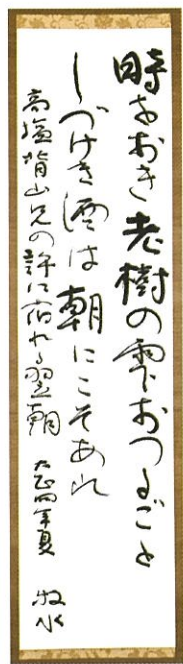 時をおき老樹の雫おつるごと
しづけき酒は朝にこそあれ
高塩背山兄の許に宿れる翌朝 大正四年夏 牧水